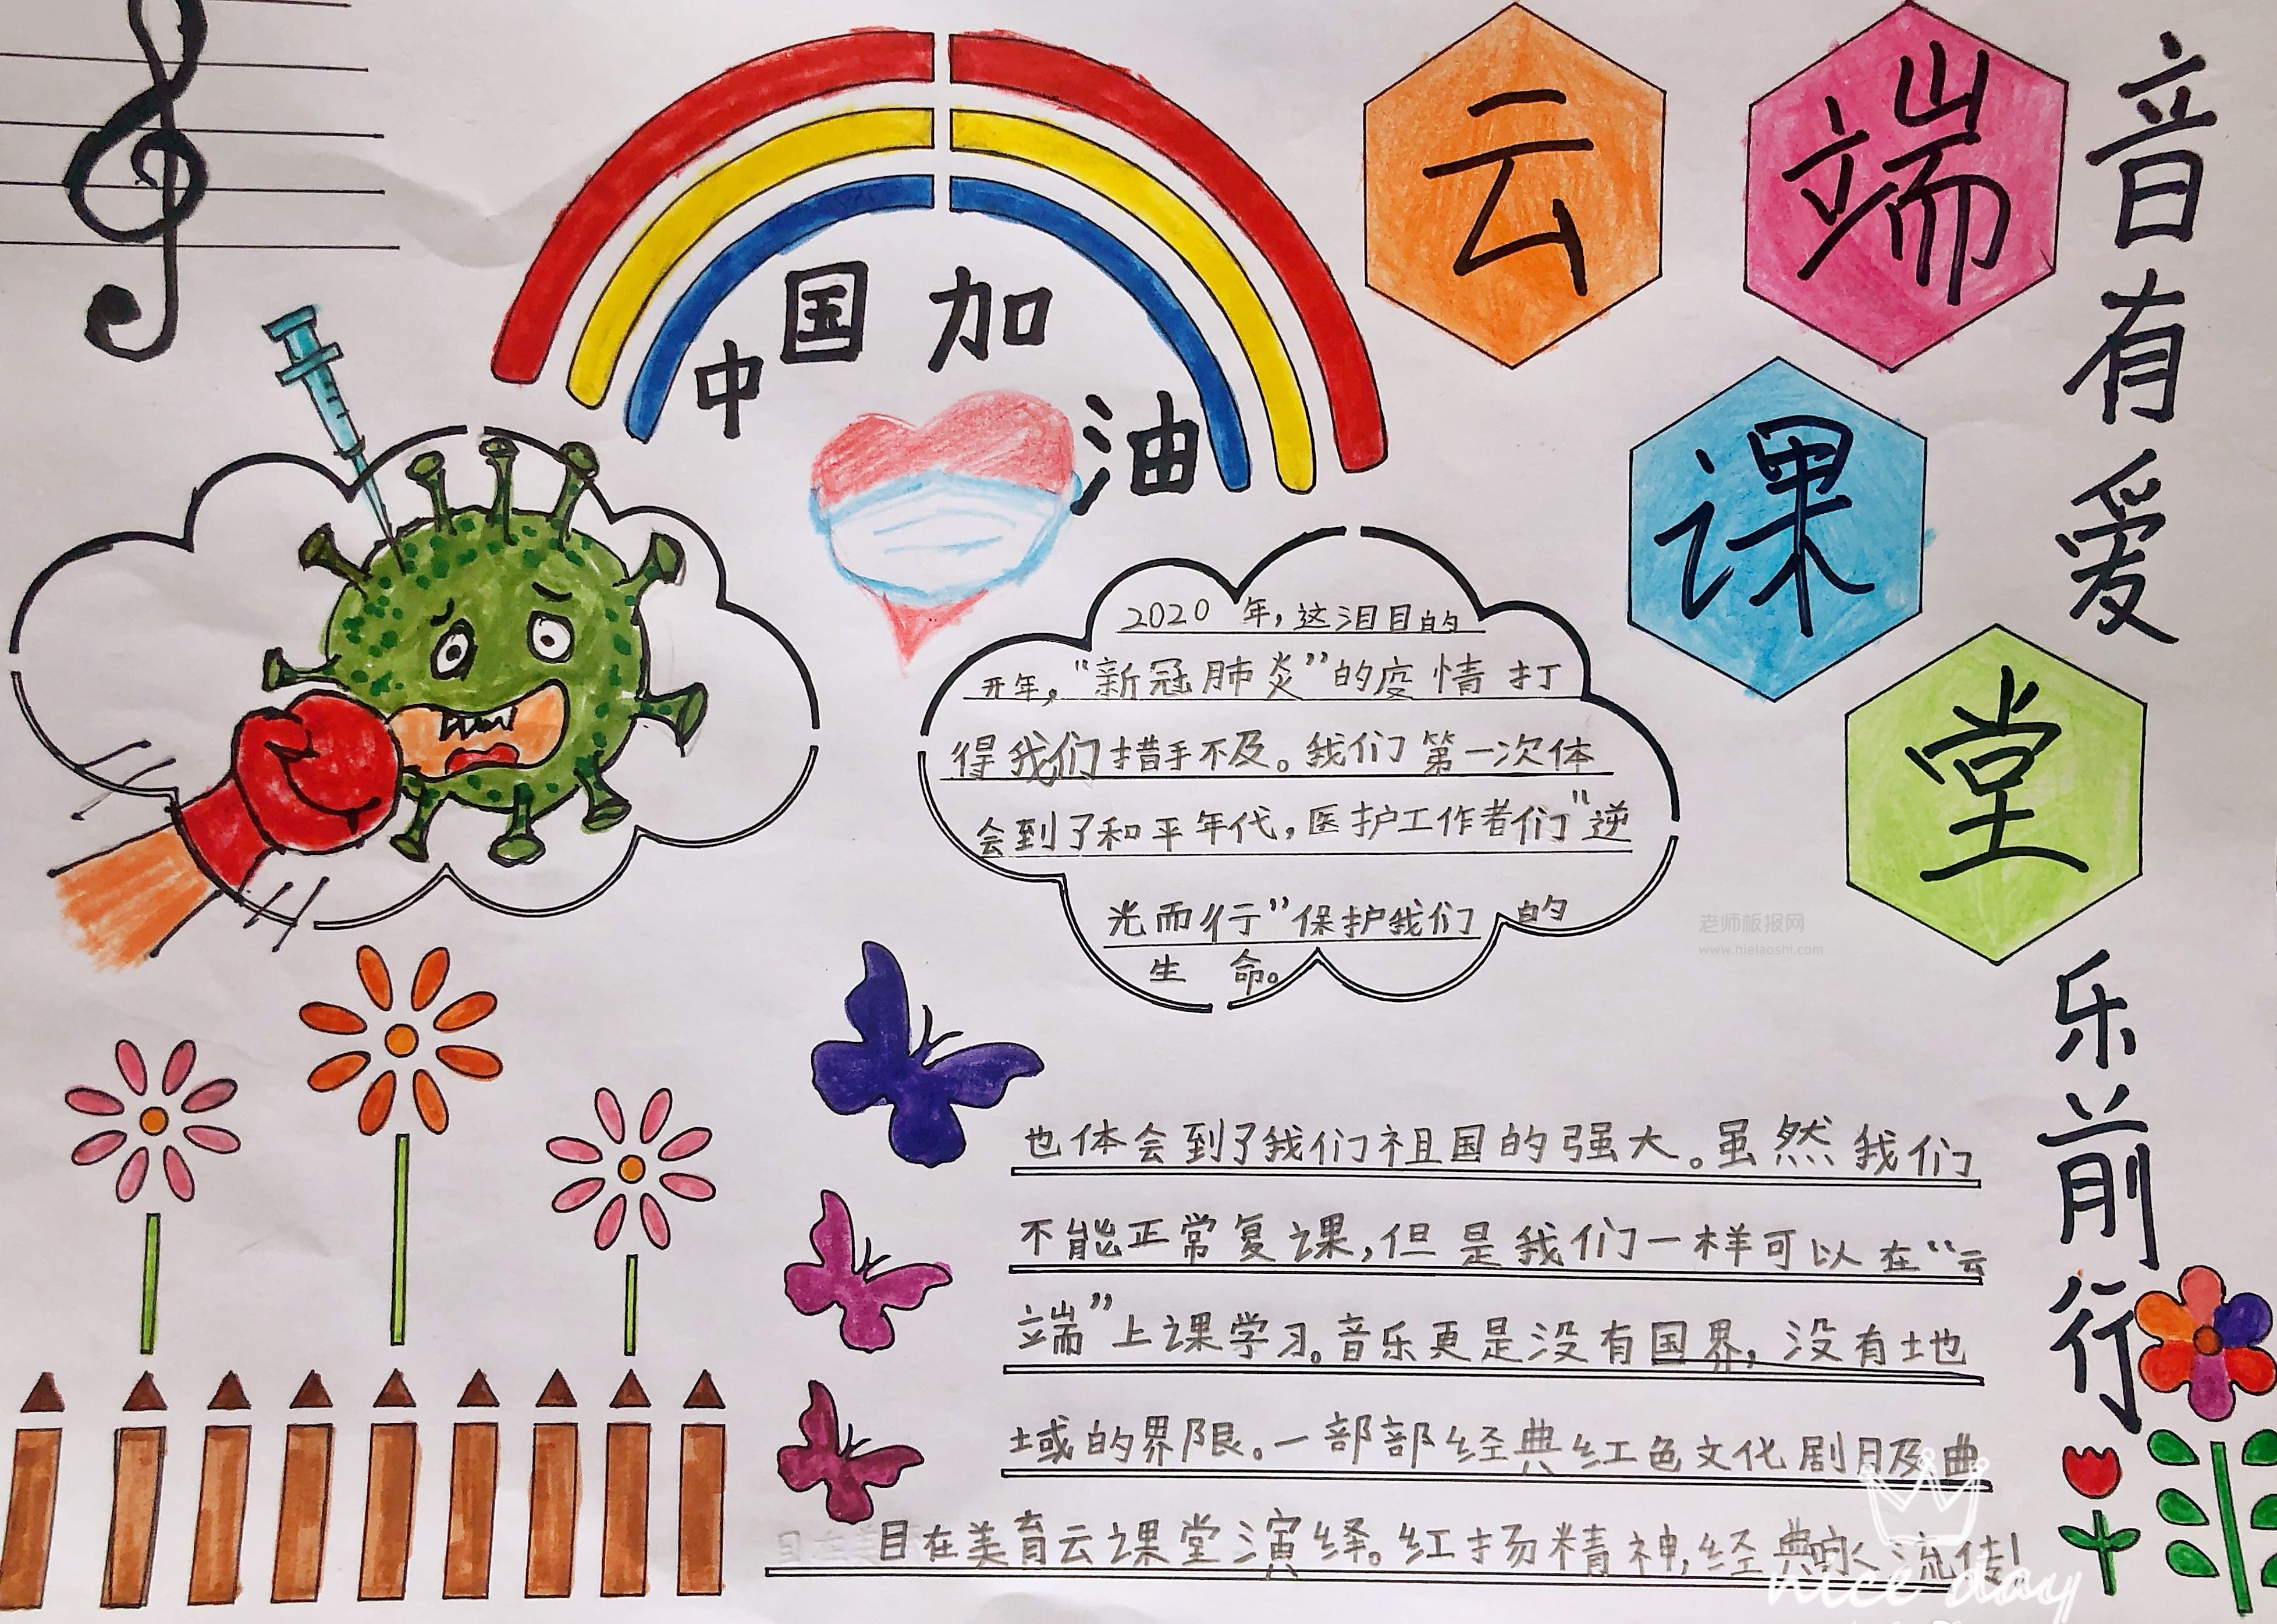 中国加油
云端课堂
音有爱
乐前行
2020年，这泪目的
开年，“新冠肺炎”的疫情打
得我们措手不及。我们第一次体
会到了和平年代，医护工作者们“逆
光而行”保护我们的
生命。
老师板报网
www.nielaoshi.com
也体会到了我们祖国的强大。虽然我们
不能正常复课，但是我们一样可以在“云
端”上课学习。音乐更是没有国界，没有地
域的界限。一部部经典红色文化剧及曲
目在美育云课堂演绎。红扬精神，经典永流传！
nice day